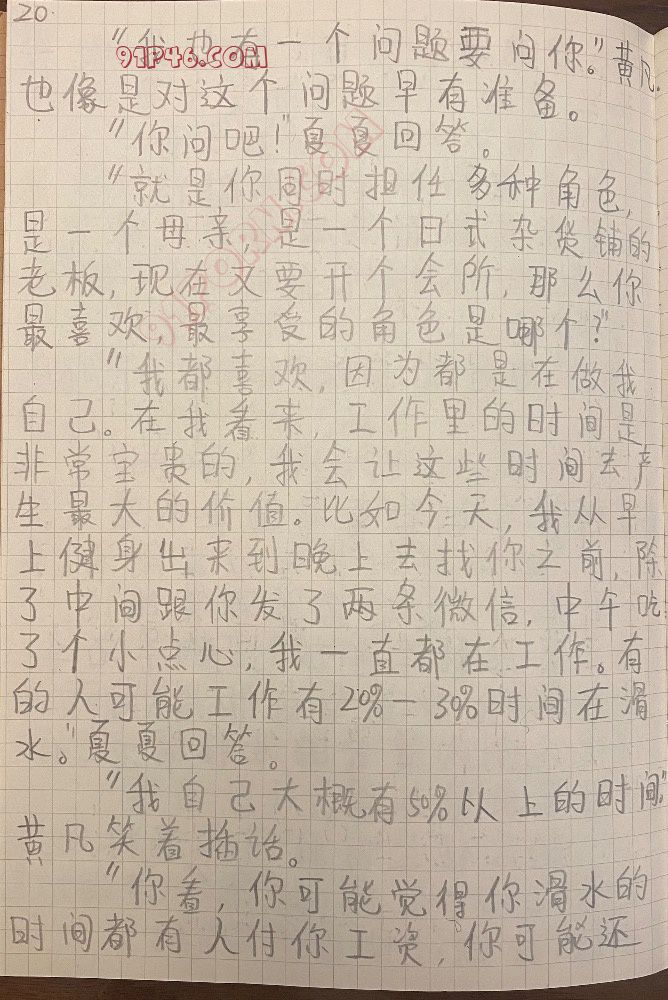 20.
"我也有一个问题要问你。"黄凡
91P46.COM
也像是对这个问题早有准备。
"你问吧!"夏夏回答。
"就是你同时担任多种角色,
是一个母亲,是一个日式杂货铺的
老板,现在又要开个会所,那么你
最喜欢,最享受的角色是哪个?"
"我都喜欢,因为都是在做我
自己。在我看来,工作里的时间是
非常宝贵的,我会让这些时间去产
生最大的价值。比如今天,我从早
上健身出来到晚上去找你之前,除
了中间跟你发了两条微信,中午吃
了个小点心,我一直都在工作。有
的人可能工作有20%—30%时间在滑
水。"夏夏回答。
"我自己大概有50%以上的时间。"
黄凡笑着插话。
"你看,你可能觉得你滑水的
时间都有人付你工资,你可能还